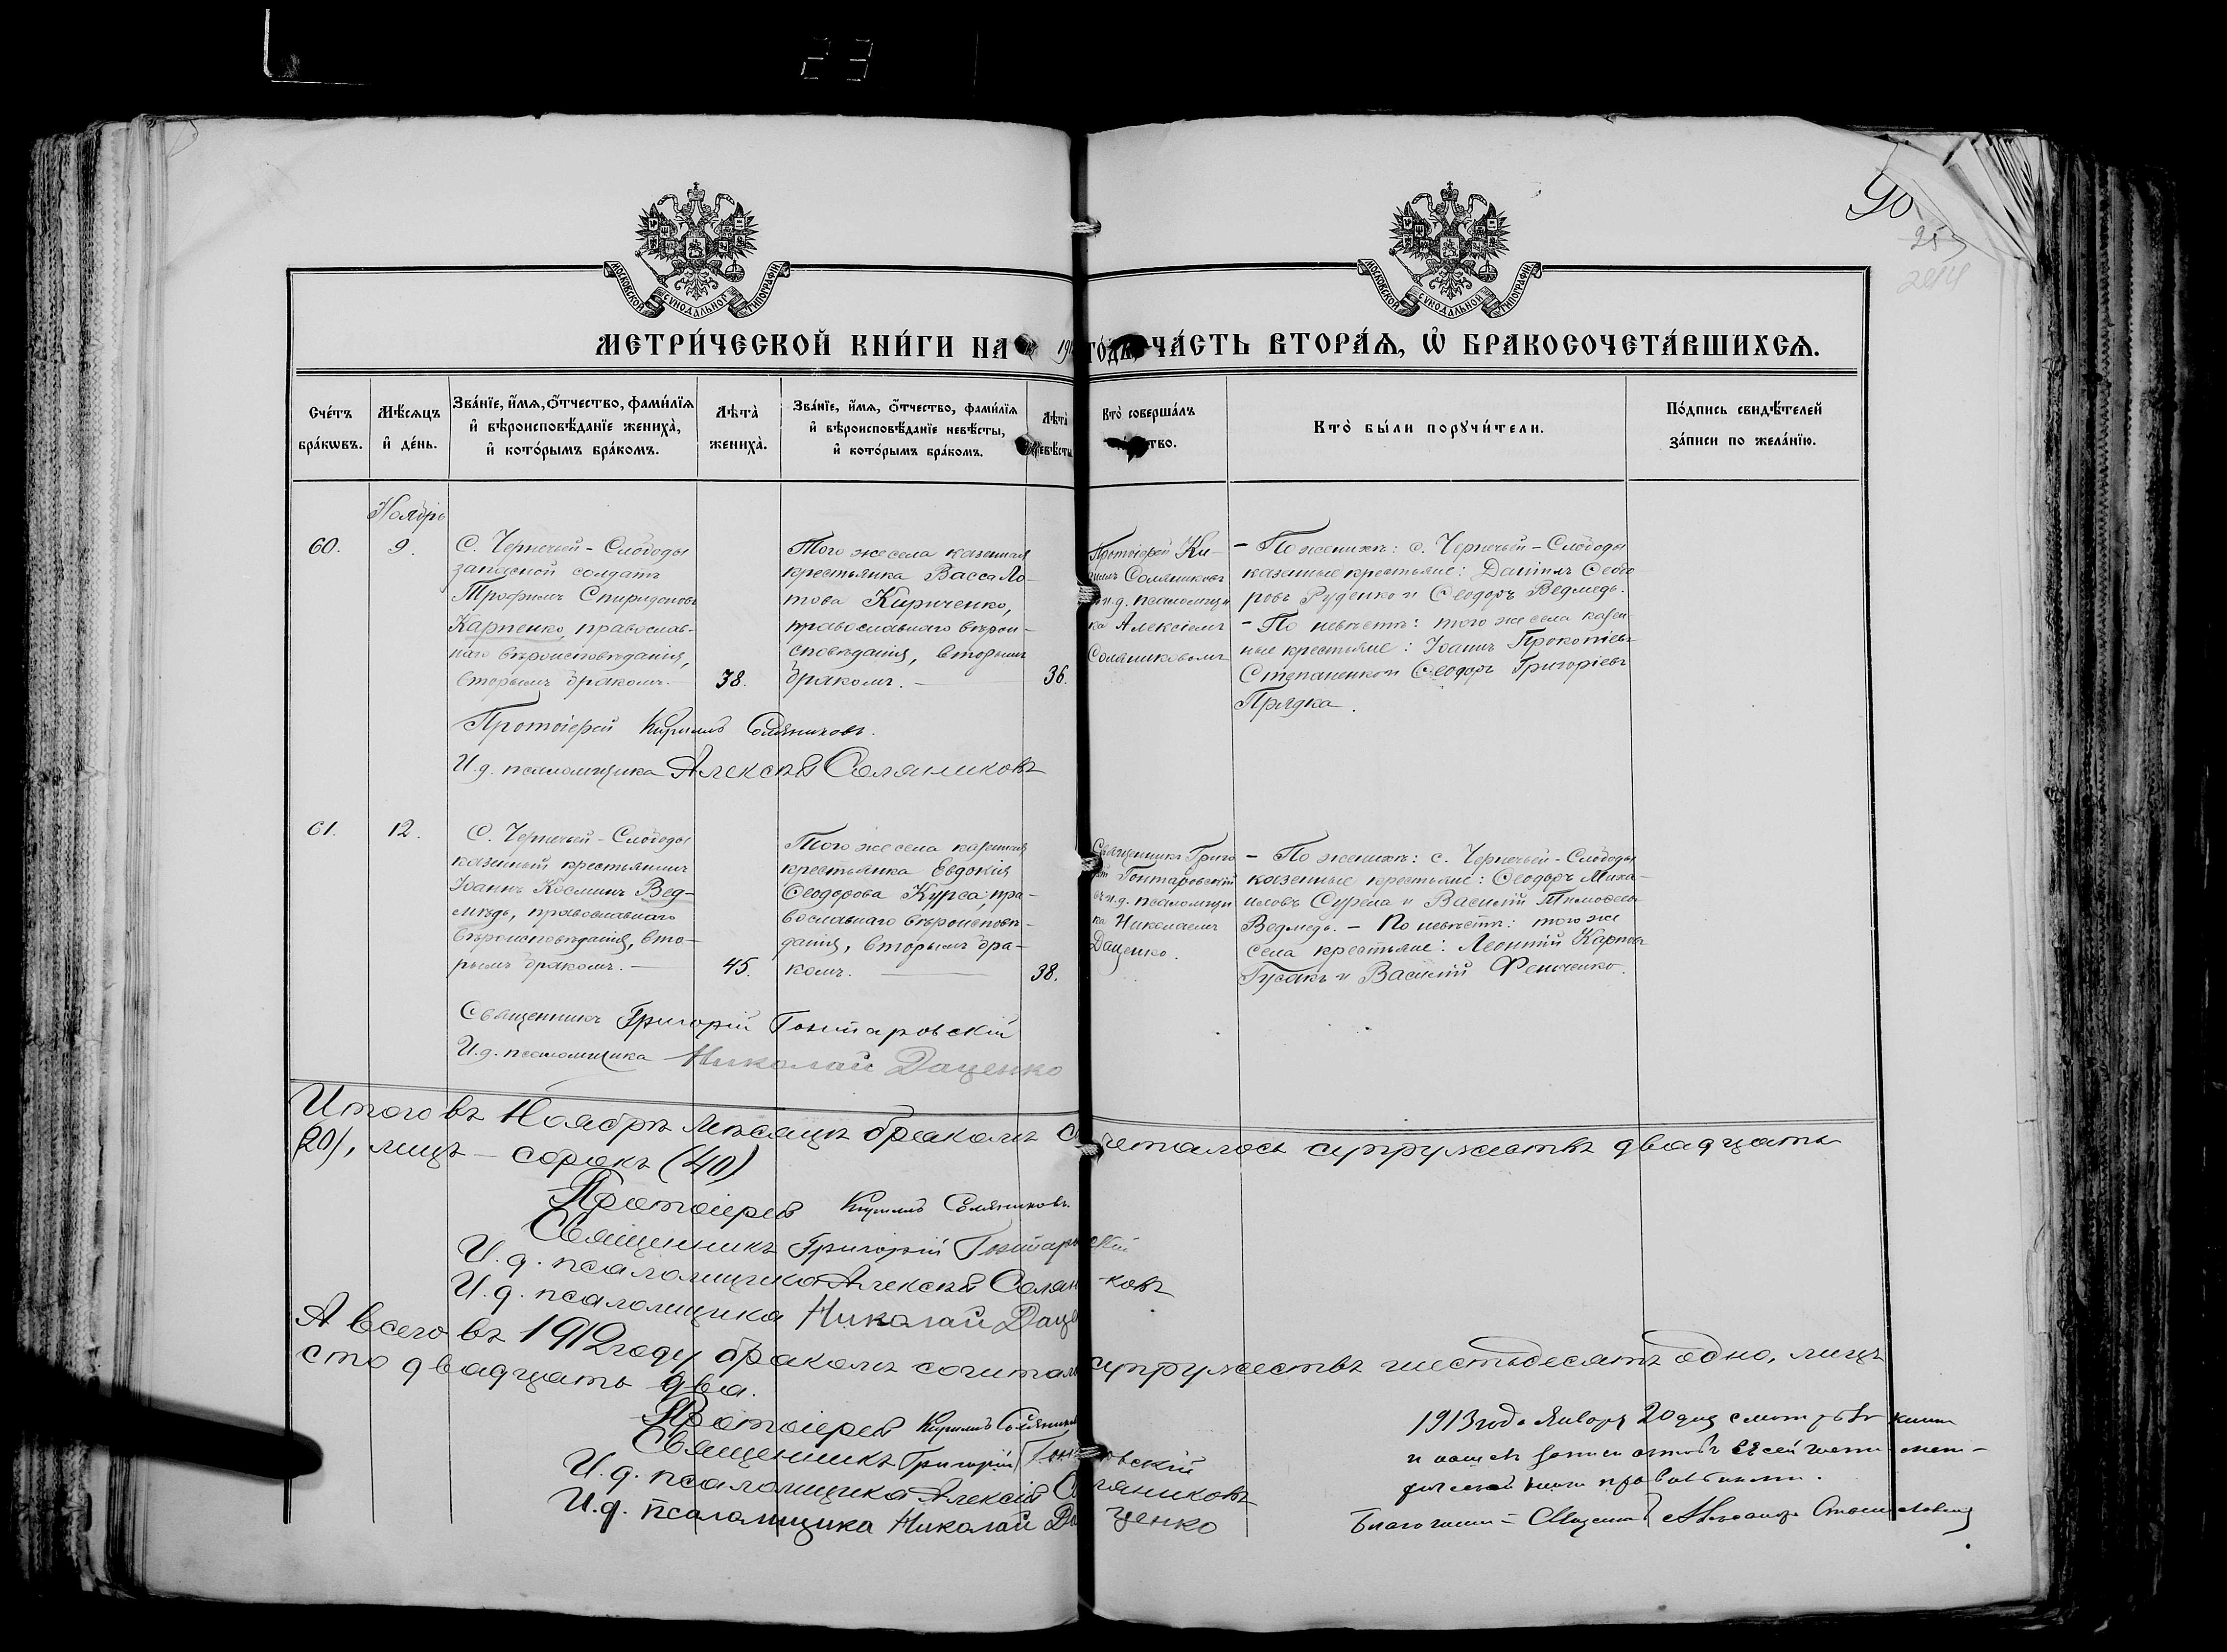 23
90
МОСКОВСКОЙ СѴНОДАЛЬНОЙ ТИПОГРАФІИ
МОСКОВСКОЙ СѴНОДАЛЬНОЙ ТИПОГРАФІИ
МЕТРИ́ЧЕСКОЙ КНИ́ГИ НА 191 ГОДЪ, ЧА́СТЬ ВТОРА́Ѧ, Ѽ БРАКОСОЧЕТА́ВШИХСѦ.
Сче́тъ бра́кѡвъ.
Мѣ́сяцъ и҆ де́нь.
Зва́нїе, и҆́мѧ, ѻ҆́тчество, фами́лїѧ и҆ вѣроисповѣ́данїе жениха̀, и҆ кото́рымъ бра́комъ.
Лѣта̀ жениха̀.
Зва́нїе, и҆́мѧ, ѻ҆́тчество, фами́лїѧ и҆ вѣроисповѣ́данїе невѣ́сты, и҆ кото́рымъ бра́комъ.
Лѣта̀ невѣ́сты
Кто̀ соверша́лъ тво.
Кто̀ бы́ли порꙋчи́тели.
По́дпись свидѣ́телей за́писи по жела́нїю.
Ноябрь
60.
9.
С. Чернечьей-Слободы
запасной солдатъ
Трофимъ Спиридоновъ
Карпенко, православ-
наго вѣроисповѣданія,
вторымъ бракомъ.-
38.
Того же села казенная
крестьянка Васса Ло-
това Кириченко,
православнаго вѣрои-
сповѣданія, вторымъ
бракомъ. -
36.
Протоіерей Ки-
риллъ Соляниковъ
съ и.д. псаломщи
ка Алексіемъ
Соляниковымъ
- По женихѣ: с. Чернечьей-Слободы
казенные крестьяне: Даніилъ Ѳедо
ровъ Руденко и Ѳеодоръ Ведмедь.
- По невѣстѣ: того же села казен
ные крестьяне: Іоаннъ Прокопіевъ
Степаненко и Ѳеодоръ Григоріевъ
Прядка.
Протоіерей Кириллъ Соляниковъ.
И.д. псаломщика Алексѣй Соляниковъ
61.
12.
С. Чернечьей-Слободы
казенный крестьянинъ
Іоаннъ Косминъ Вед-
мѣдь, православнаго
вѣроисповѣданія, вто-
рымъ бракомъ. -
45.
Того же села казенная
крестьянка Евдокія
Ѳеодорова Курса, пра-
вославнаго вѣроисповѣ-
данія, вторымъ бра-
комъ.
38.
Священникъ Григо
рій Гонтаровскій
съ и.д. псаломщи
ка Николаемъ
Даценко.
- По женихѣ: с. Чернечьей-Слободы
казенные крестьяне: Ѳеодоръ Миха-
иловъ и Василій
Ведмедь. - По невѣстѣ: того же
села крестьяне: Леонтій Карповъ
Гусакъ и Василій Фенченко.
Священникъ Григорій Гонтаровскій
И.д. псаломщика Николай Даценко
Итого въ Ноябрѣ мѣсяцѣ бракомъ сочеталось супружествъ двадцать
(20), лицъ - сорокъ (40)
Протоіерей Кириллъ Соляниковъ.
Священникъ Григорій Гонтаровскій
И.д. псаломщика Алексѣй Соляниковъ
И.д. псаломщика Николай Даце
А всего въ 1912 году бракомъ сочиталось супружествъ шестьдесятъ одно, лицъ
сто двадцать два.
Протоіерей Кириллъ Соляников
Священникъ Григорій Гонтаровскій
И.д. псаломщика Алексій Соляниковъ
И.д. псаломщика Николай Даценко
1913 года Января 20 дня
Благочинный Священникъ